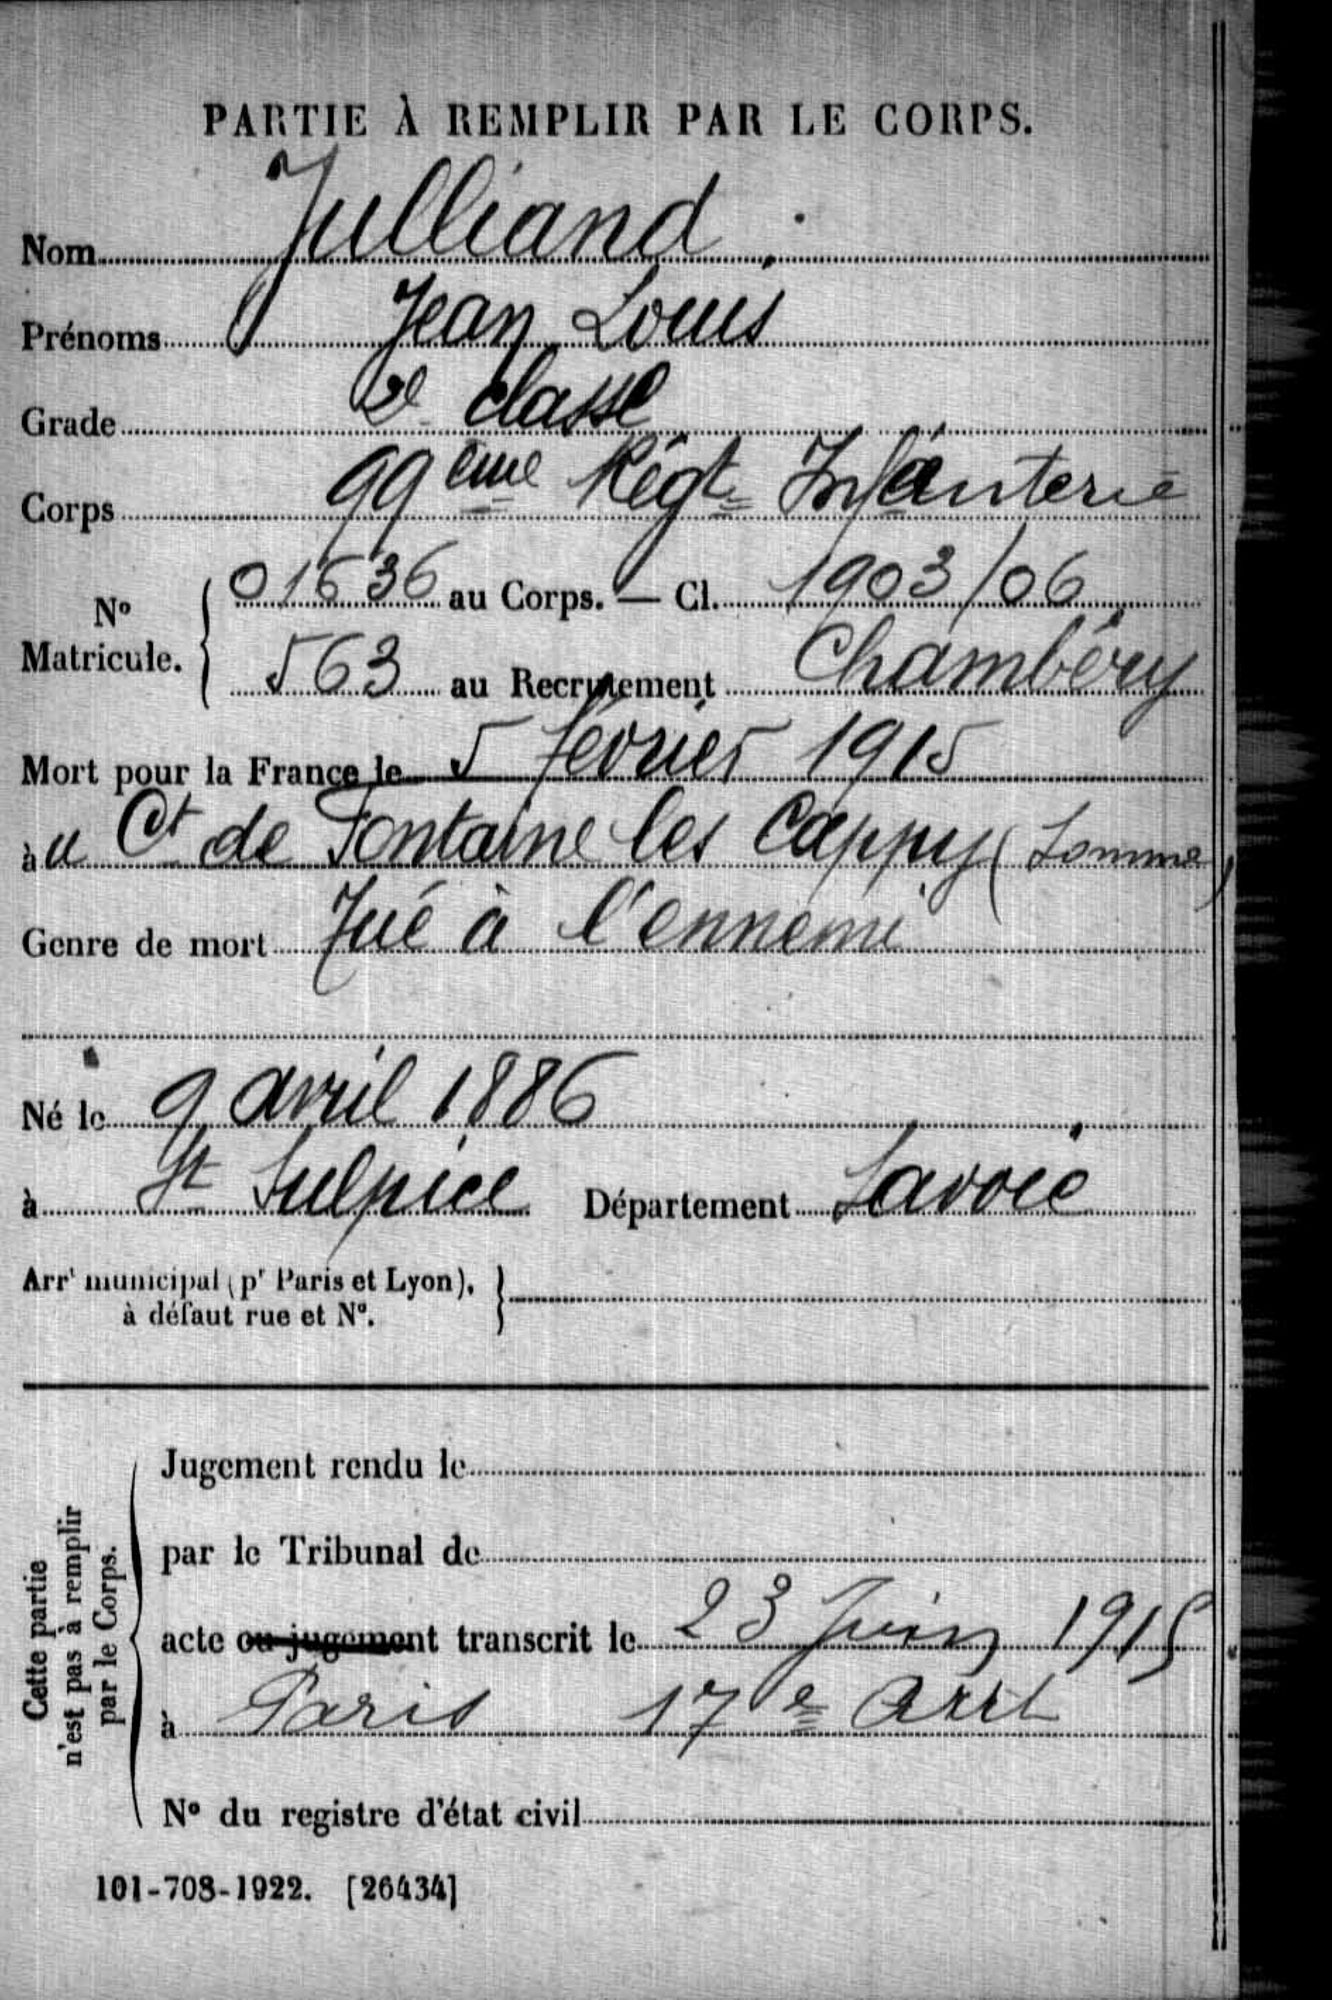 PARTIE À REMPLIR PAR LE CORPS.
Nom Julliand
Prénoms Jean Louis
Grade 2e classe
Corps 99ème Régt Infanterie
N° Matricule. 01636 au Corps. — Cl. 1903/06
563 au Recrutement Chambéry
Mort pour la France le 5 février 1915
à u Ct de Fontaine les Cappy (Somme)
Genre de mort Tué à l'ennemi
Né le 9 avril 1886
à St Sulpice Département Savoie
Arrt municipal (pr Paris et Lyon),
à défaut rue et N°.
Cette partie
n'est pas à remplir
par le Corps.
Jugement rendu le
par le Tribunal de
acte ou jugement transcrit le 23 Juin 1915
à Paris 17e Arrt
N° du registre d'état civil
101-708-1922. [26434]